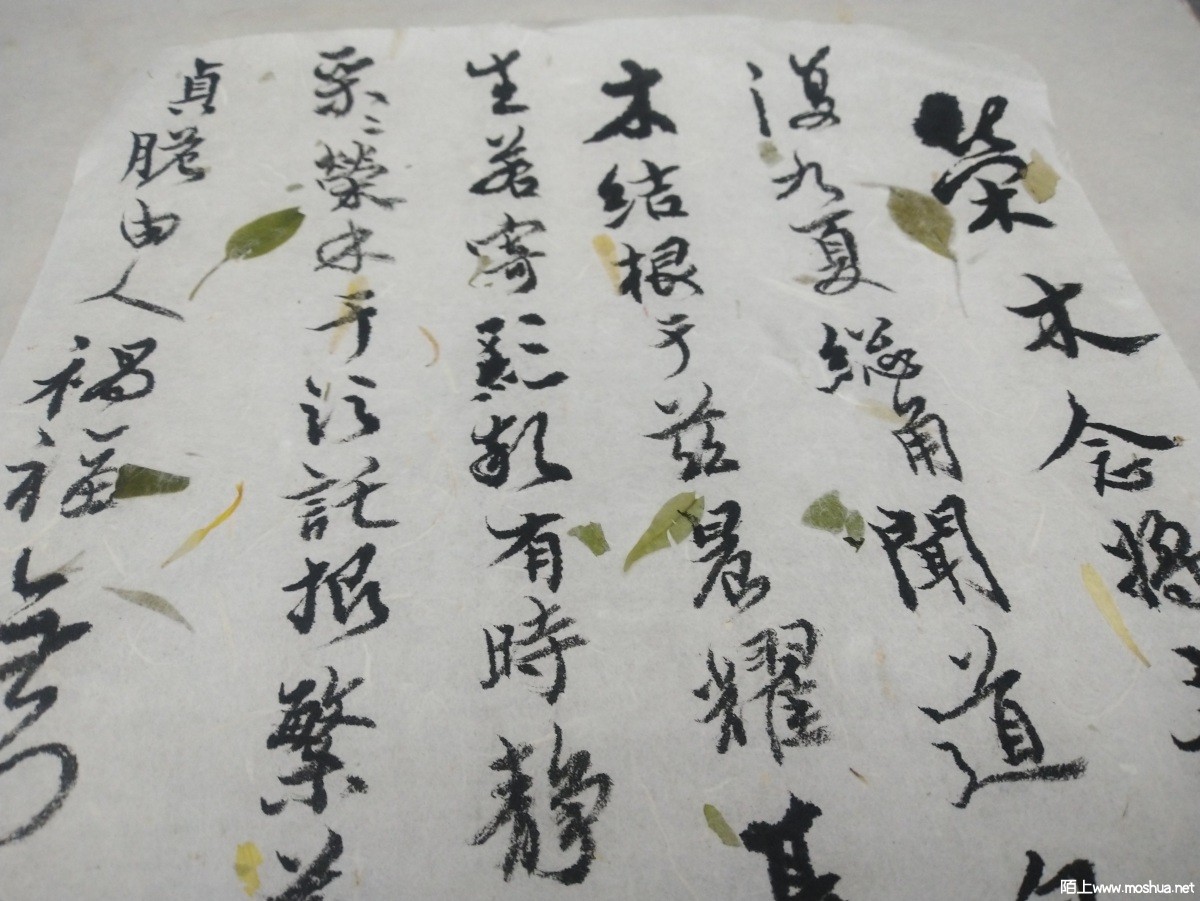 荣木念將
復九夏總角聞道
木結根于茲晨耀其
生若寄顦顇有時靜
采〻榮木于茲託根繁華
貞脆由人禍福無門
陌上www.moshua.net